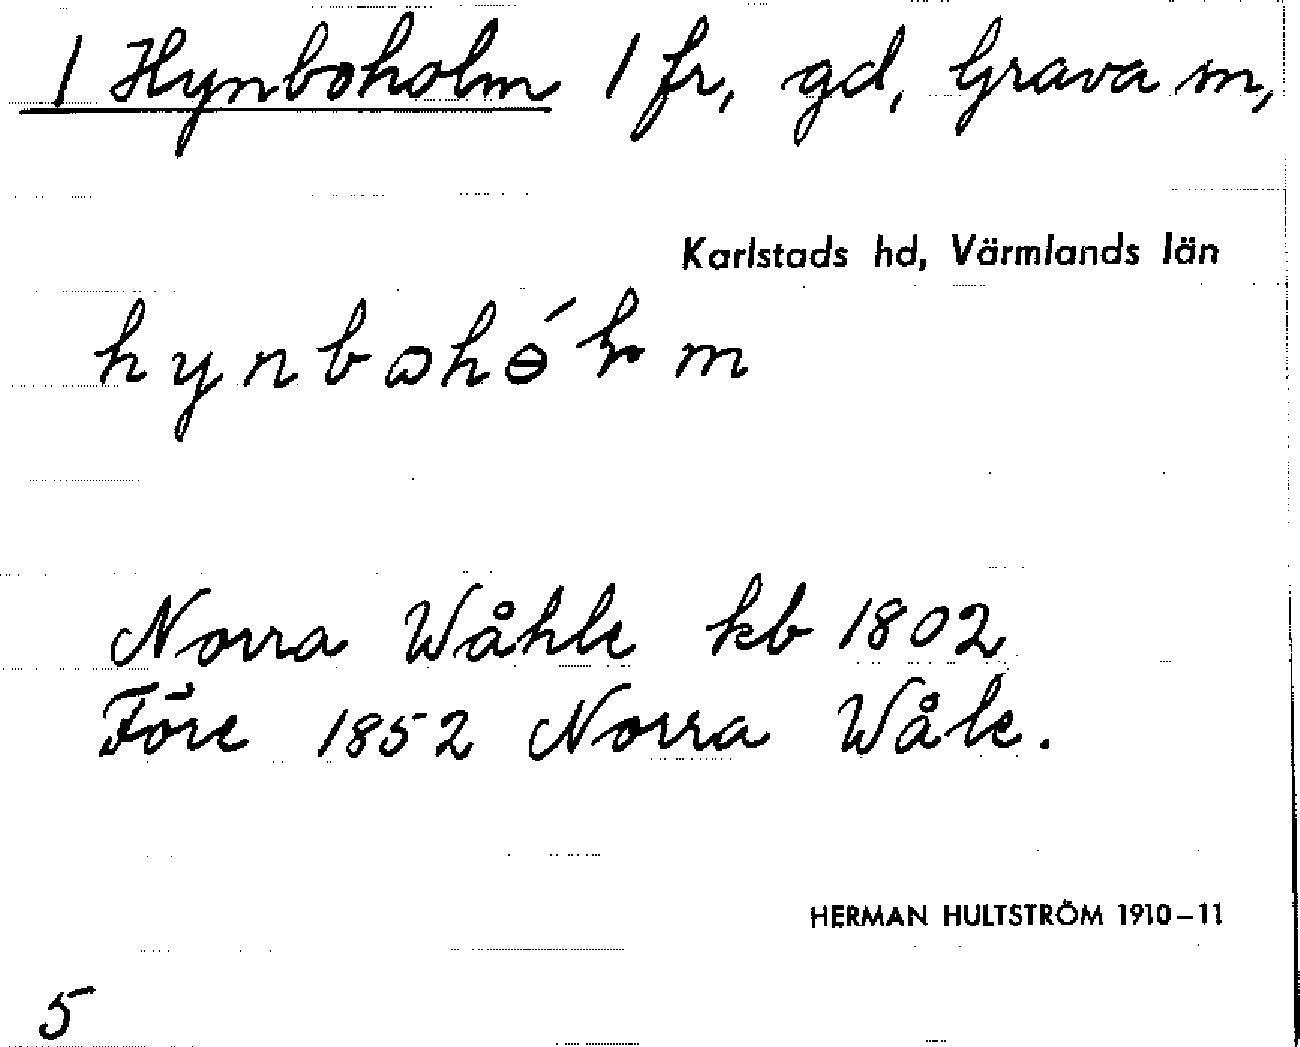 1 Hynboholm 1 fr, gd, Grava sn,
Karlstads hd, Värmlands län
Norra Wåhle kb 1802
Före 1852 Norra Wåle.
HERMAN HULTSTRÖM 1910–11
5